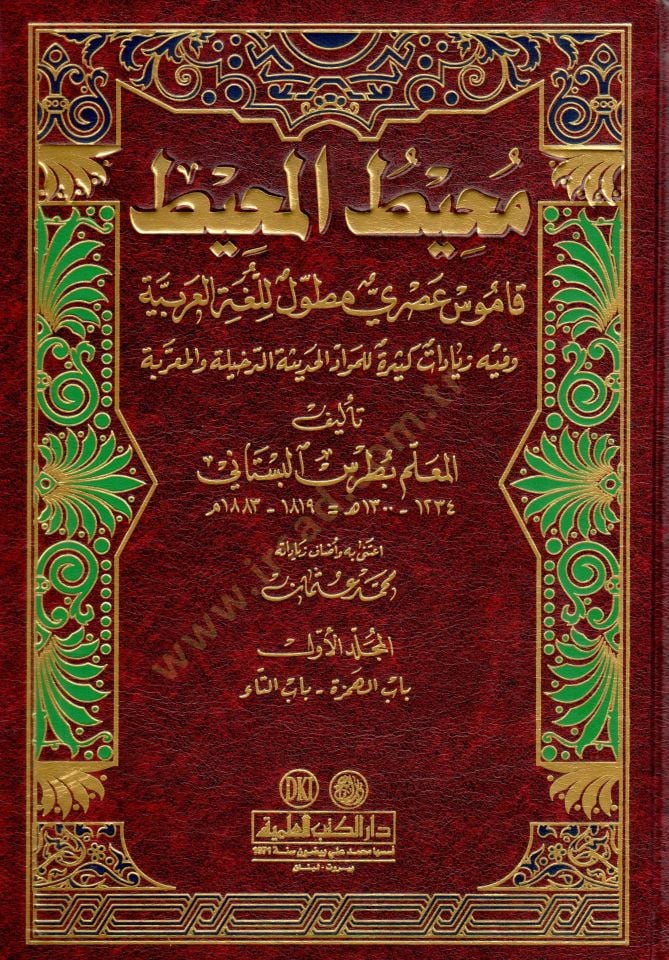 مُحِيْطُ المُحِيْط
قامُوسْ عَصْريٌّ مطوّلٌ للُّغَةِ العَرَبيَّة
وفيه زياداتٌ كثيرة للمواد الحديثة الدخيلة والمعرّبة
تأليف
المعلّم بُطرس البُستَاني
١٢٣٤ - ١٣٠٠هـ = ١٨١٩ - ١٨٨٣م
اعتنى به وأضاف زياداته
محمد عثمان
المجلّد الأوّل
باب الهمزة - باب التاء
DKI
دار الكتب العلمية
أسسها محمد علي بيضون سنة 1971
بيروت - لبنان